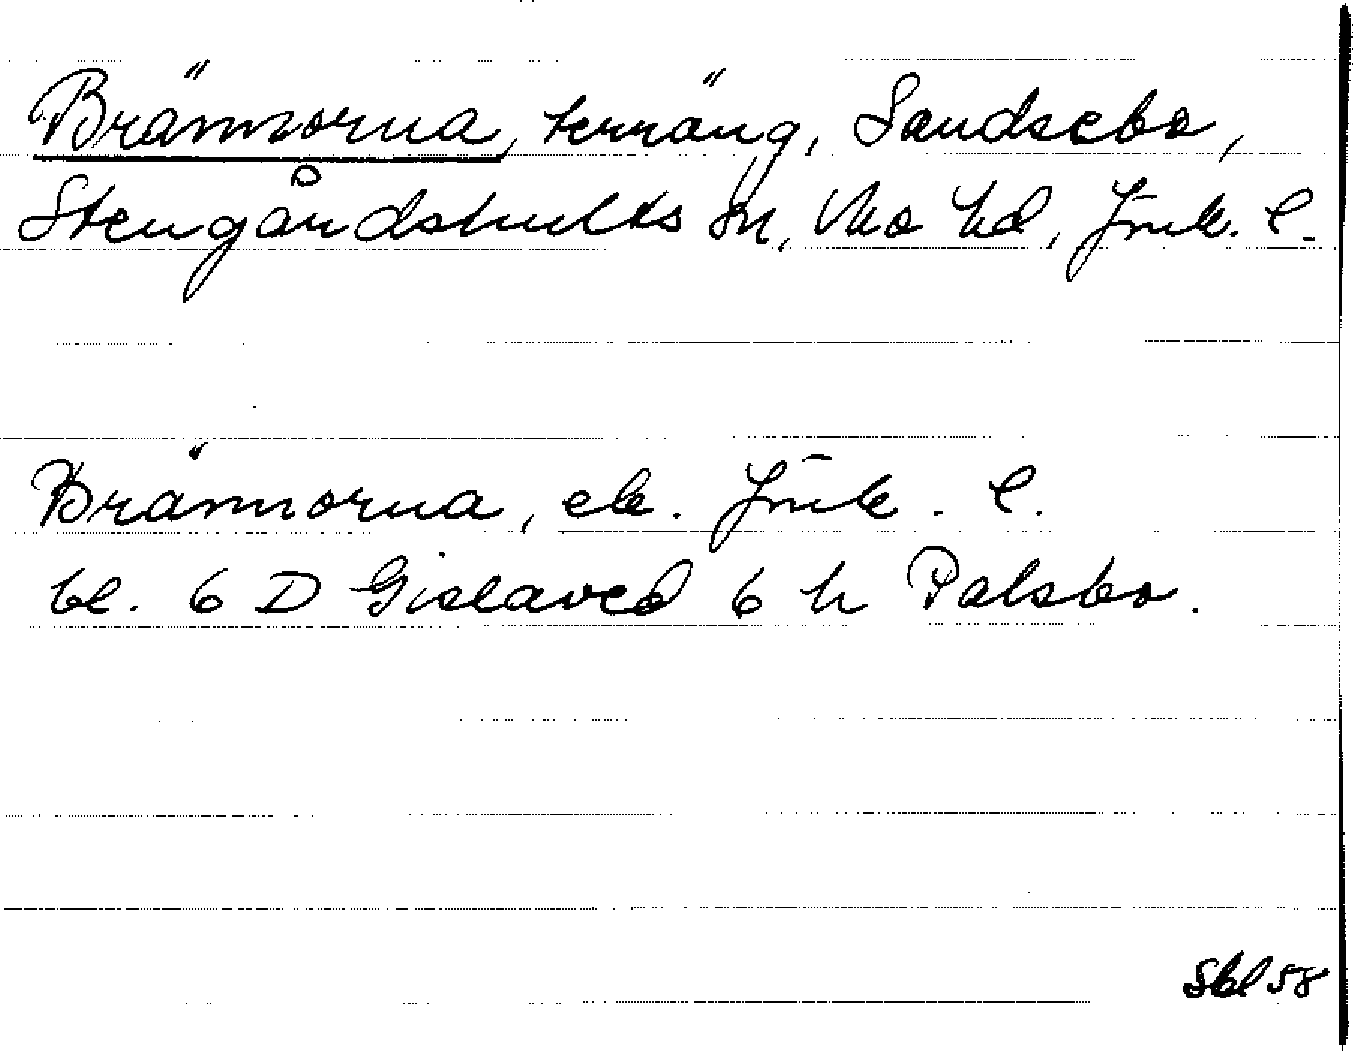 Brännorna, terräng, Sandsebo,
Stengårdshults sn, Mo hd, Jönk. l.
Brännorna, ek. Jönk. l.
bl. 6 D Gislaved 6 h Palsbo.
Sbl 58